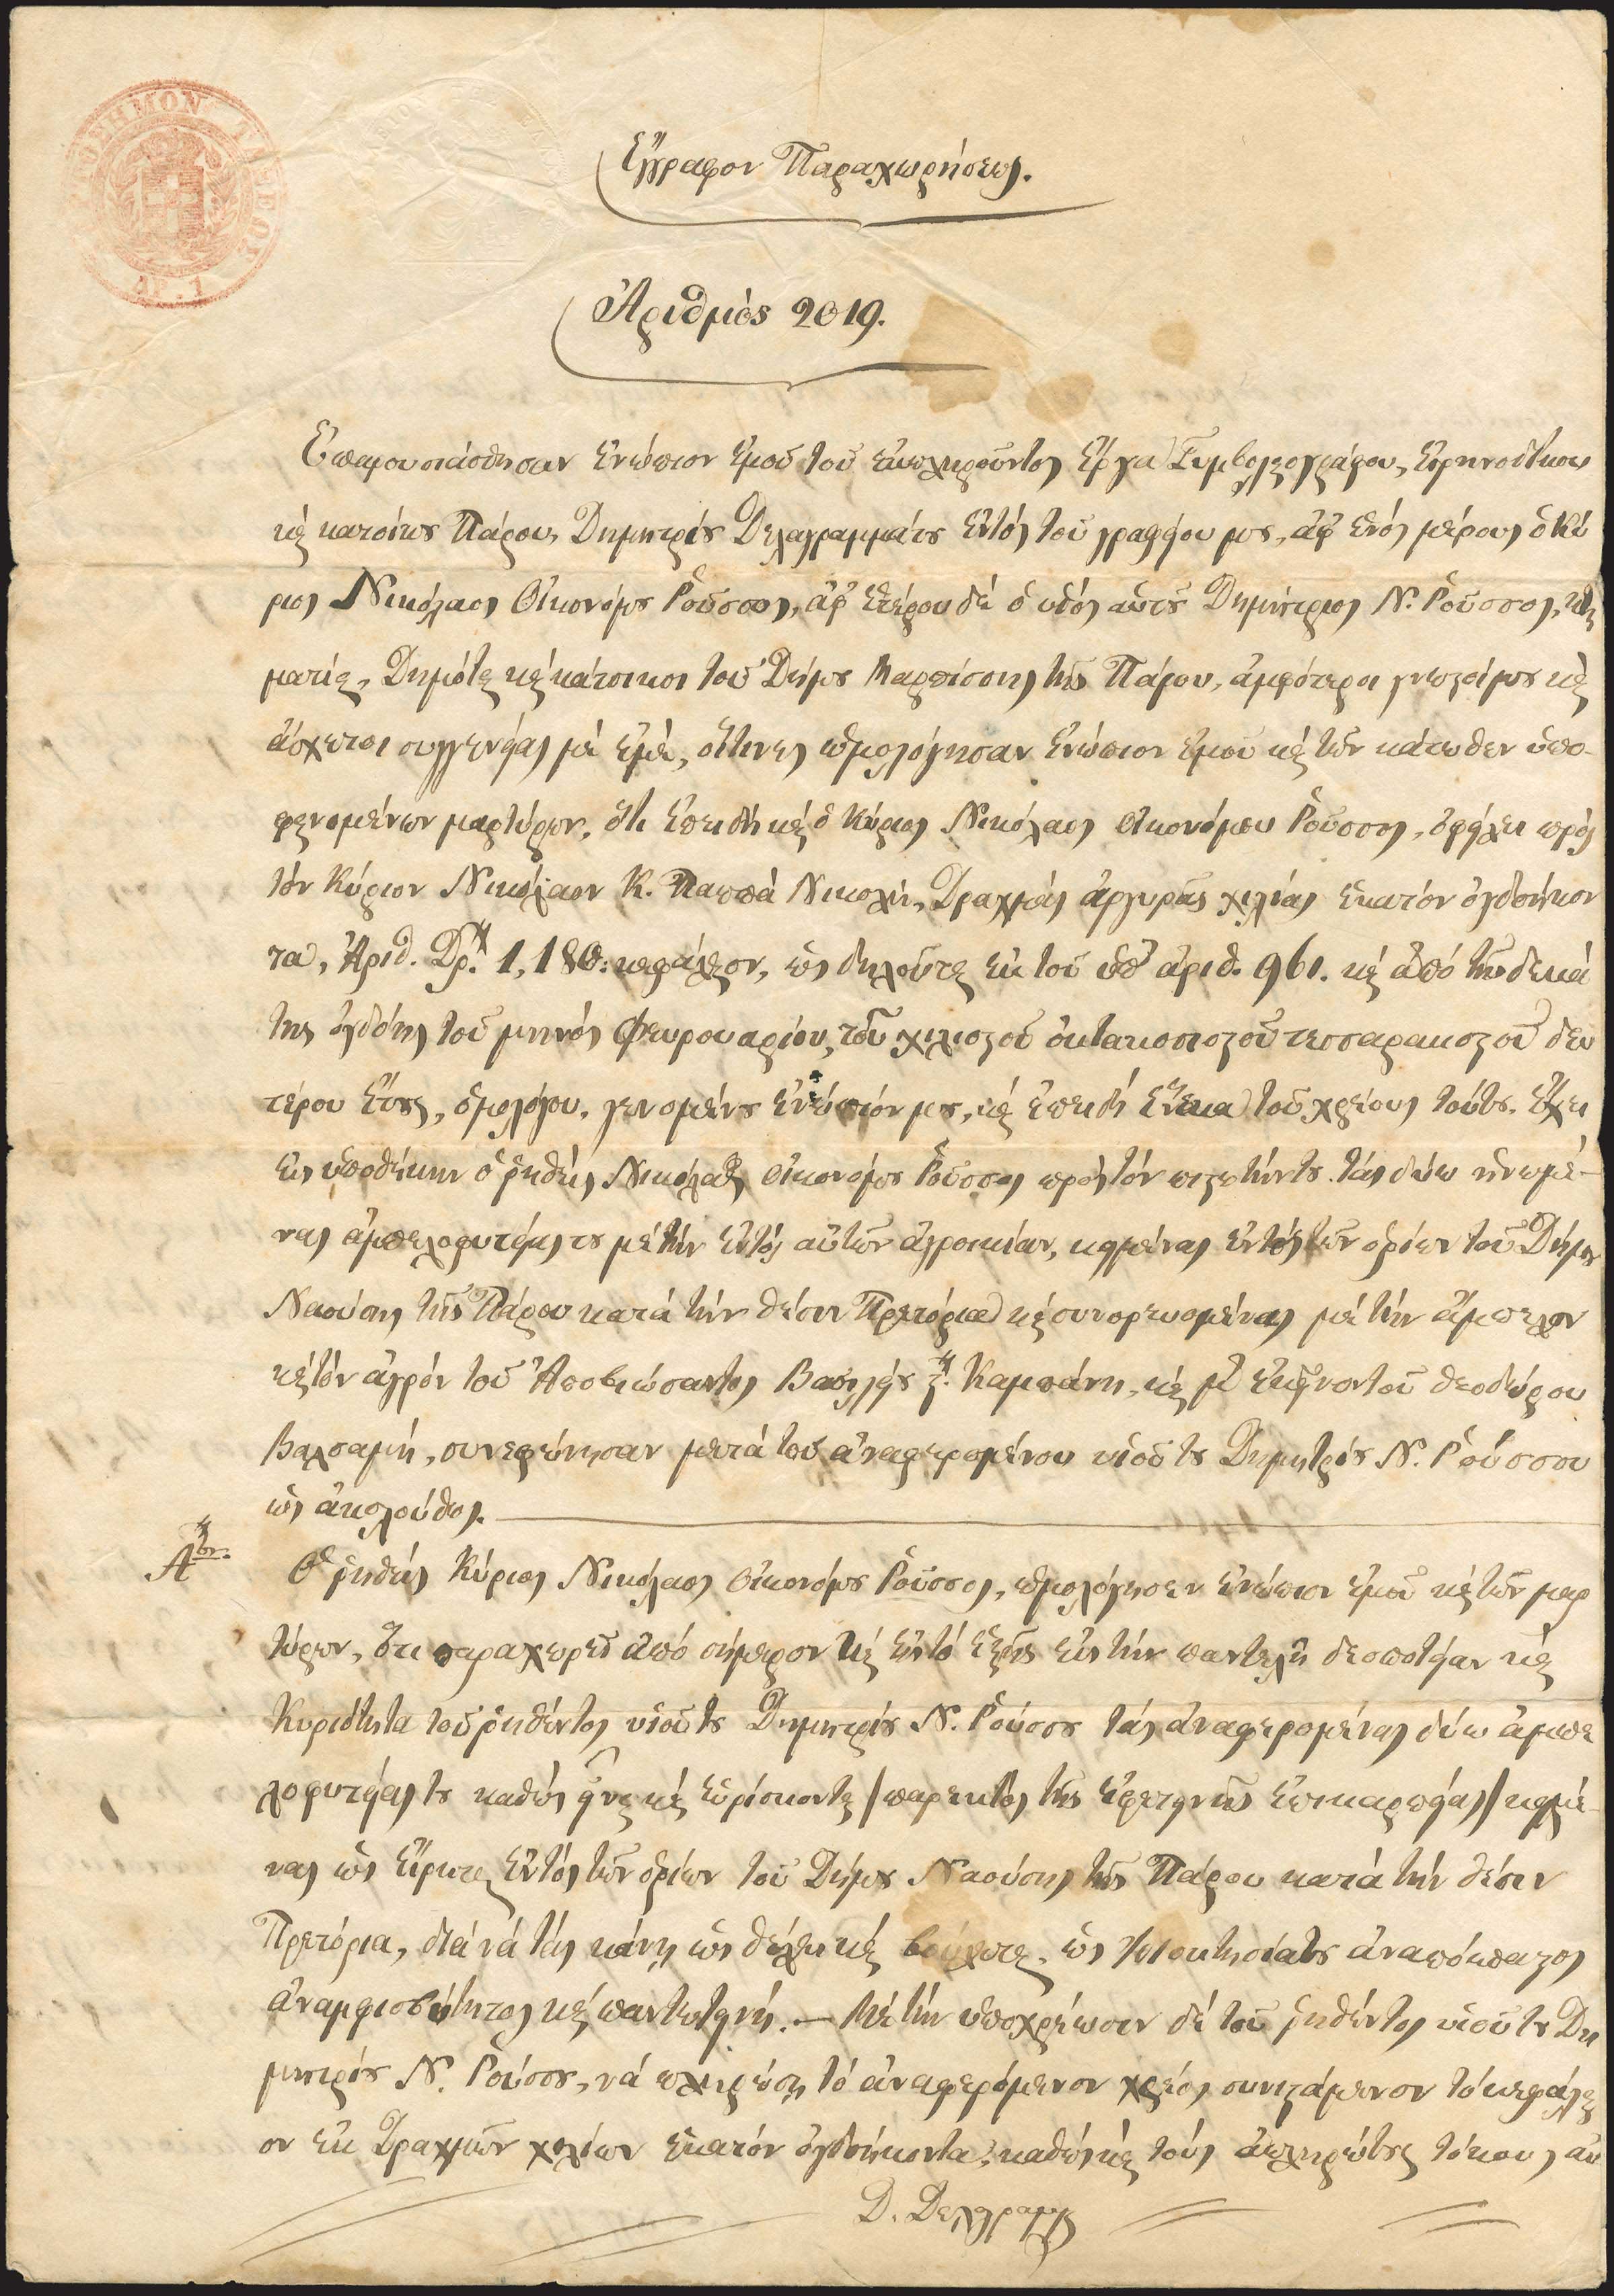 ΧΑΡΤΟΣΗΜΟΝ ΤΕΛΟΣ
ΔΡ. 1
Ἔγγραφον Παραχωρήσεως.
Ἀριθμὸς 2019.
Ἐπαρουσιάσθησαν ἐνώπιον ἐμοῦ τοῦ ἐκπληροῦντος ἔργα Συμβολαιογράφου, Εἰρηνοδίκου
καὶ κατοίκου Πάρου, Δημητρίου Δελαγραμμάτου ἐντὸς τοῦ γραφείου μου, ἀφ' ἑνὸς μέρους ὁ Κύ
ριος Νικόλαος Οἰκονόμου Ροῦσσος, ἀφ' ἑτέρου δὲ ὁ υἱός αὐτοῦ Δημήτριος Ν. Ροῦσσος, κτη
ματίαι, Δημόται καὶ κάτοικοι τοῦ Δήμου Μαρπίσσης τῆς Πάρου, ἀμφότεροι γνωστοί μου καὶ
ἄσχετοι συγγενείας μὲ ἐμὲ, οἵτινες ὡμολόγησαν ἐνώπιον ἐμοῦ καὶ τῶν κάτωθεν ὑπο-
φαινομένων μαρτύρων, ὅτι ἐπειδὴ καὶ ὁ Κύριος Νικόλαος Οἰκονόμου Ροῦσσος, ὀφείλει πρὸς
τὸν Κύριον Νικόλαον Κ. Παππᾶ Νικολῆ, Δραχμὰς ἀργυρᾶς χιλίας ἑκατὸν ὀγδοήκον
τα, Ἀριθ. Δρ. 1,180: κεφάλαιον, ὡς δηλοῦται ἐκ τοῦ ὑπ' ἀριθ. 961. καὶ ἀπό τὴν δεκά
της ὀγδόης τοῦ μηνὸς Φευρουαρίου, τοῦ χιλιοστοῦ ὀκτακοσιοστοῦ τεσσαρακοστοῦ δευ
τέρου ἔτους, ὁμολόγου, γενομένου ἐνώπιόν μου, καὶ ἐπειδὴ ἕνεκα τοῦ χρέους τούτου. ἔχει
εἰς ὑποθήκην ὁ ῥηθεὶς Νικόλαος Οἰκονόμου Ροῦσσος πρὸς τὸν πιστωτήν του τὰς δύω ἡνωμέ-
νας ἀμπελοφυτείας του μὲ τὴν ἐντὸς αὐτῶν ἀγροικίαν, κειμένας ἐντὸς τῶν ὁρίων τοῦ Δήμου
Ναούσης τῆς Πάρου κατὰ τὴν θέσιν Πρετόρια καὶ συνορευομένας μὲ τὴν ἄμπελον
καὶ τὸν ἀγρόν τοῦ Ἀποβιώσαντος Βασιλείου Καμπάνη, καὶ μ' ἐκεῖνον τοῦ Θεοδώρου
Βαλσαμῆ, συνεφώνησαν μετὰ τοῦ ἀναφερομένου υἱοῦ του Δημητρίου Ν. Ρούσσου
ὡς ἀκολούθως.
Αον. Ὁ ῥηθεὶς Κύριος Νικόλαος Οἰκονόμου Ροῦσσος, ὡμολόγησεν ἐνώπιον ἐμοῦ καὶ τῶν μαρ
τύρων, ὅτι παραχωρεῖ ἀπό σήμερον καὶ εἰς τὸ ἑξῆς εἰς τὴν παντελῆ δεσποτείαν καὶ
Κυριότητα τοῦ ῥηθέντος υἱοῦ του Δημητρίου Ν. Ρούσσου τὰς ἀναφερομένας δύω ἀμπε
λοφυτείας του καθὼς εἶναι καὶ εὑρίσκονται /παρεκτὸς τῆς ἐφετεινῆς ἐπικαρπείας/ κειμέ-
νας ὡς εἴρηται ἐντὸς τῶν ὁρίων τοῦ Δήμου Ναούσης τῆς Πάρου κατὰ τὴν θέσιν
Πρετόρια, διὰ νὰ τὰς κάνῃ ὡς θέλει καὶ βούλεται, ὡς ἰδιοκτησία του ἀναπόσπαστος
ἀναμφισβήτητος καὶ παντωτεινή. — Μὲ τὴν ὑποχρέωσιν δὲ τοῦ ῥηθέντος υἱοῦ του Δη
μητρίου Ν. Ρούσσου, νὰ πληρώσῃ τὸ ἀναφερόμενον χρέος συνιστάμενον τὸ κεφάλαι
ον ἐκ Δραχμῶν χιλίων ἑκατὸν ὀγδοήκοντα, καθὼς καὶ τοὺς ἀπληρώτους τόκους αὐ
Δ. Δελαγραμμ